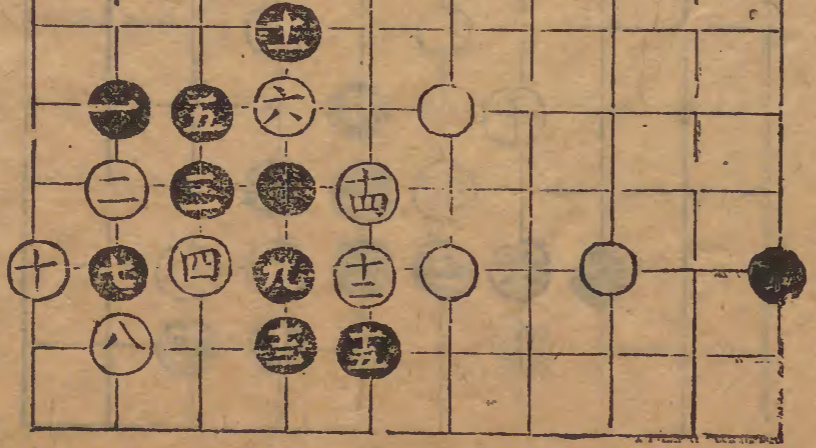 十一
一 五 六
二 三 十四
十 七 四 九 十二
八 十三 十五